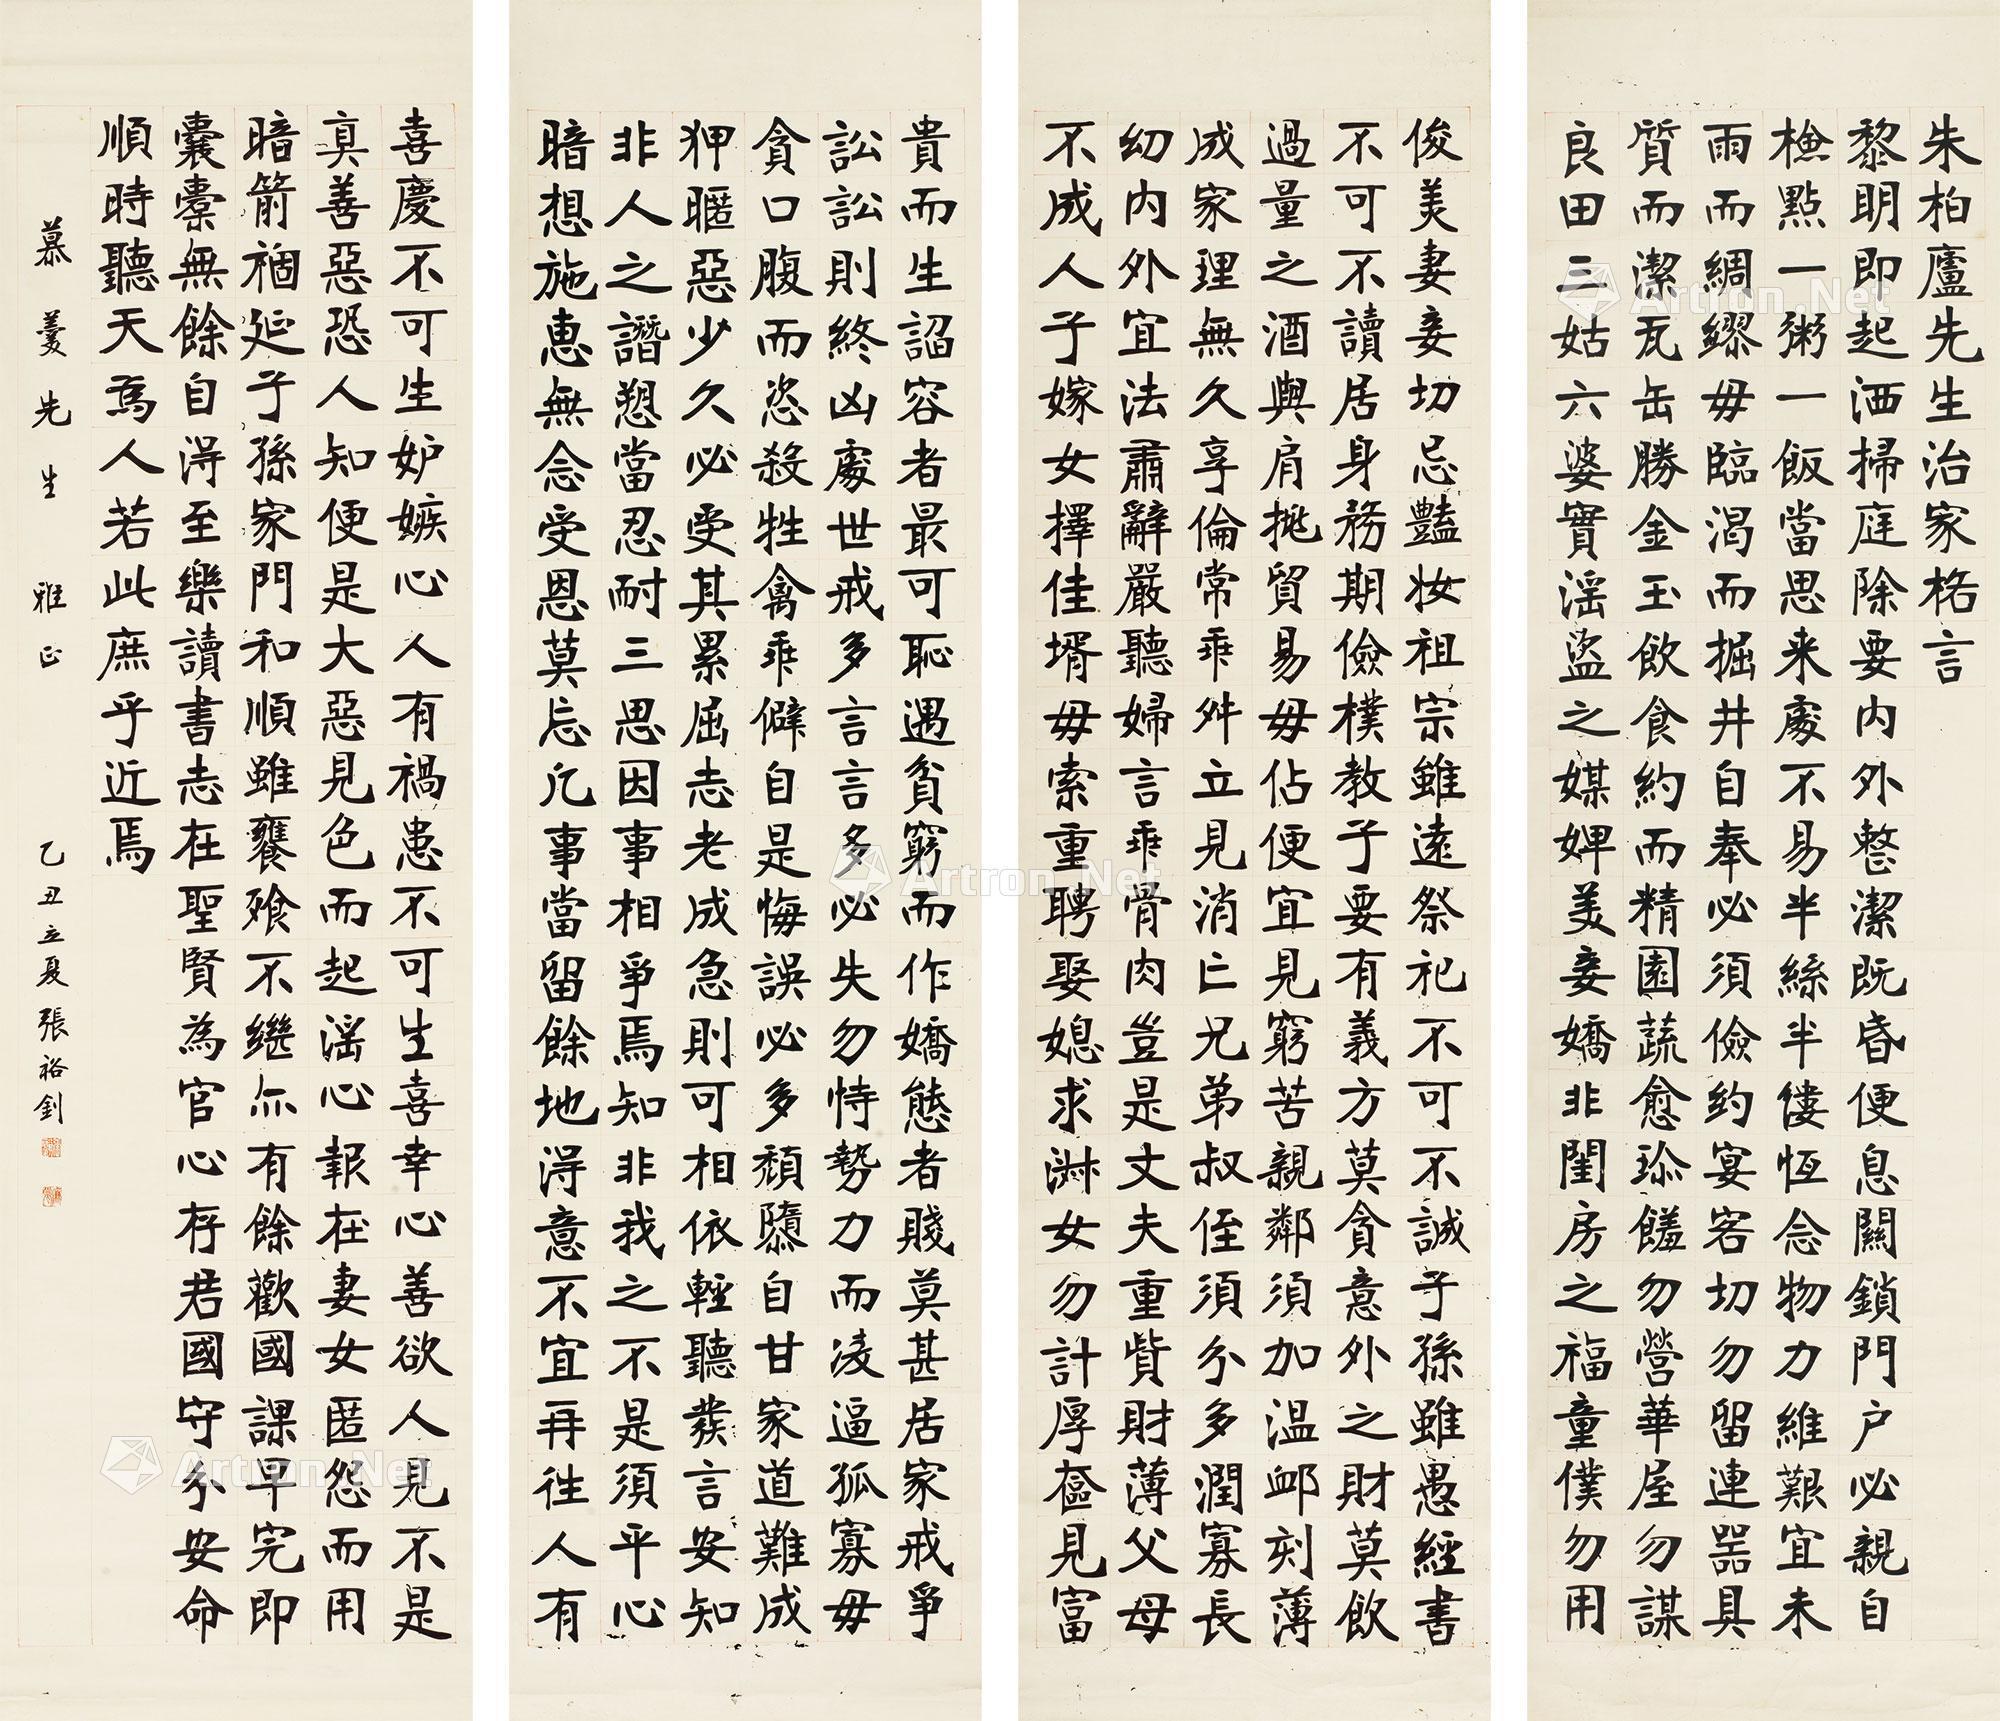 朱柏廬先生治家格言
黎明即起洒掃庭除要内外整潔既昏便息關鎖門户必親自
檢點一粥一飯當思来處不易半絲半縷恆念物力維艱宜未
雨而綢繆毋臨渴而掘井自奉必須儉約宴客切勿留連器具
質而潔瓦缶勝金玉飲食約而精園蔬愈珍饈勿營華屋勿謀
良田三姑六婆實淫盜之媒婢美妾嬌非閨房之福童僕勿用
俊美妻妾切忌豔妝祖宗雖遠祭祀不可不誠子孫雖愚經書
不可不讀居身務期儉樸教子要有義方莫貪意外之財莫飲
過量之酒與肩挑貿易毋佔便宜見窮苦親鄰須加温卹刻薄
成家理無久享倫常乖舛立見消亡兄弟叔侄須分多潤寡長
幼内外宜法肅辭嚴聽婦言乖骨肉豈是丈夫重貲財薄父母
不成人子嫁女擇佳壻毋索重聘娶媳求淑女勿計厚奩見富
貴而生諂容者最可恥遇貧窮而作嬌態者賤莫甚居家戒爭
訟訟則終凶處世戒多言言多必失勿恃勢力而凌逼孤寡毋
貪口腹而恣殺牲禽乖僻自是悔誤必多頹隳自甘家道難成
狎暱惡少久必受其累屈志老成急則可相依輕聽發言安知
非人之譖愬當忍耐三思因事相爭焉知非我之不是須平心
暗想施惠無念受恩莫忘凡事當留餘地得意不宜再往人有
喜慶不可生妒嫉心人有禍患不可生喜幸心善欲人見不是
真善惡恐人知便是大惡見色而起淫心報在妻女匿怨而用
暗箭禍延子孫家門和順雖饔飱不繼亦有餘歡國課早完即
囊橐無餘自得至樂讀書志在聖賢為官心存君國守分安命
順時聽天為人若此庶乎近焉
慕 先生 雅正 乙丑立夏張裕釗
Artron.Net
Artron.Net
Artron.Net
Artron.Net